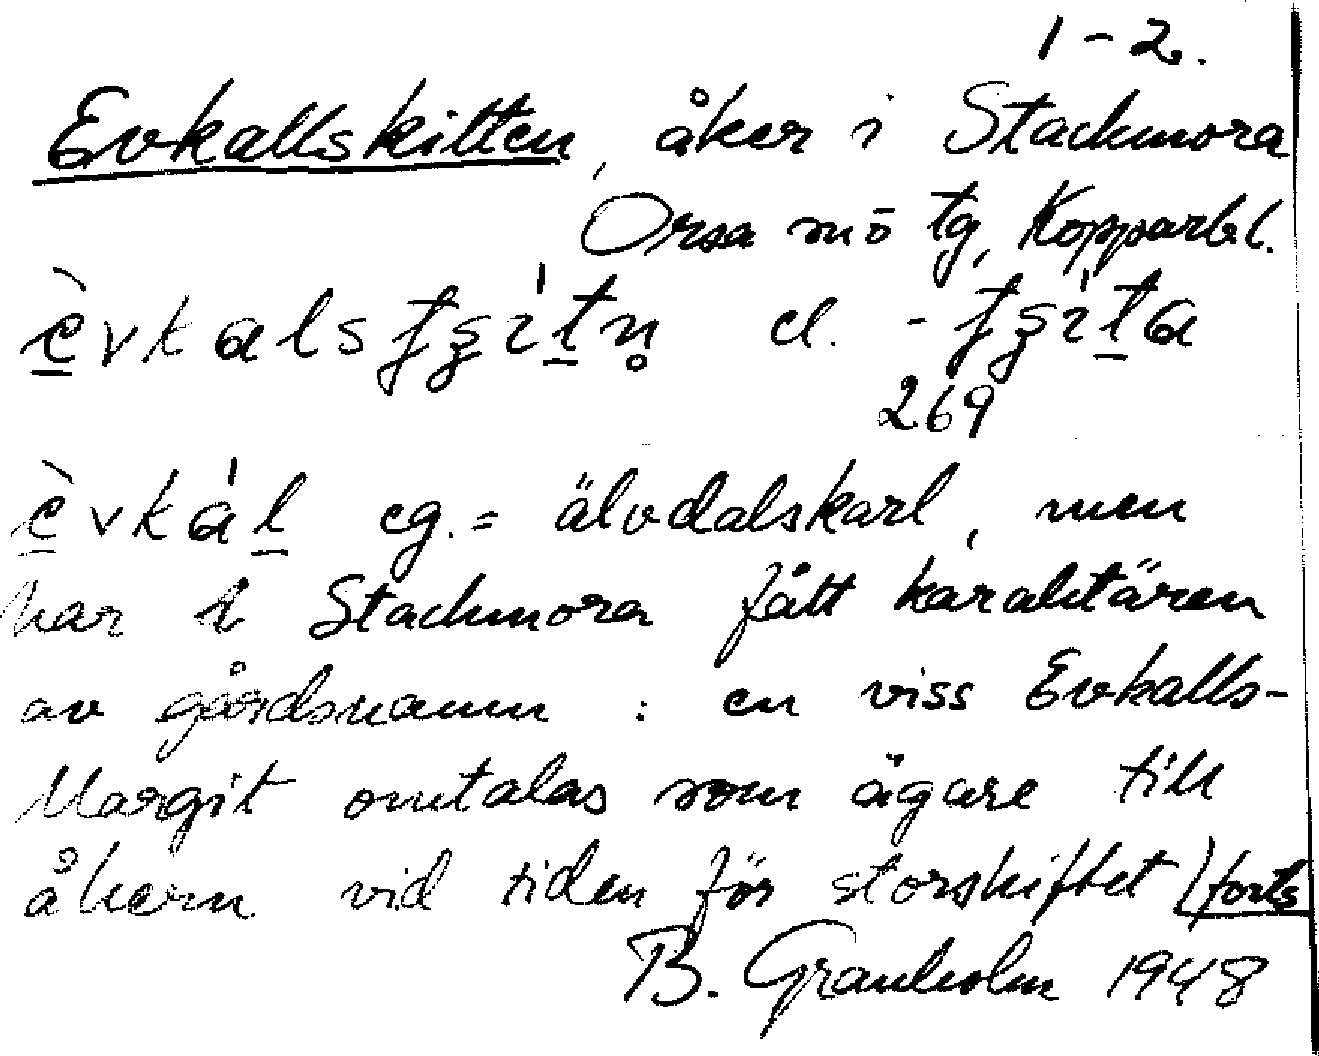 1-2.
Evkallskitten, åker i Stackmora
Orsa mö tg, Kopparbl.
èvkalsʃʂítn̥ el. -ʃʂíta
269
èvkál eg. = älvdalskarl, men
har i Stackmora fått karaktären
av gårdsnamn : en viss Evkalls-
Margit omtalas som ägare till
åkern vid tiden för storskiftet (forts
B. Granholm 1948